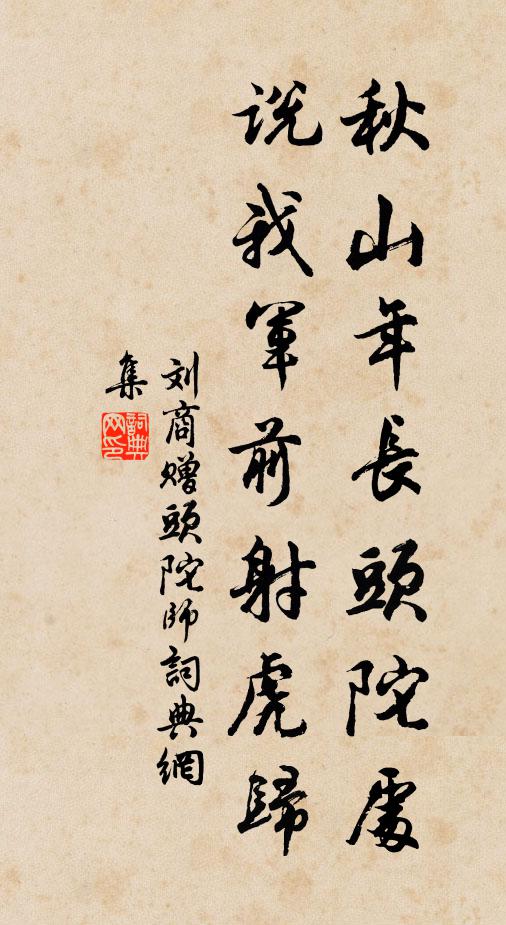 秋山年長頭陀處
説我軍前射虎歸
刘商赠頭陀师詞典網
集
詞典網印